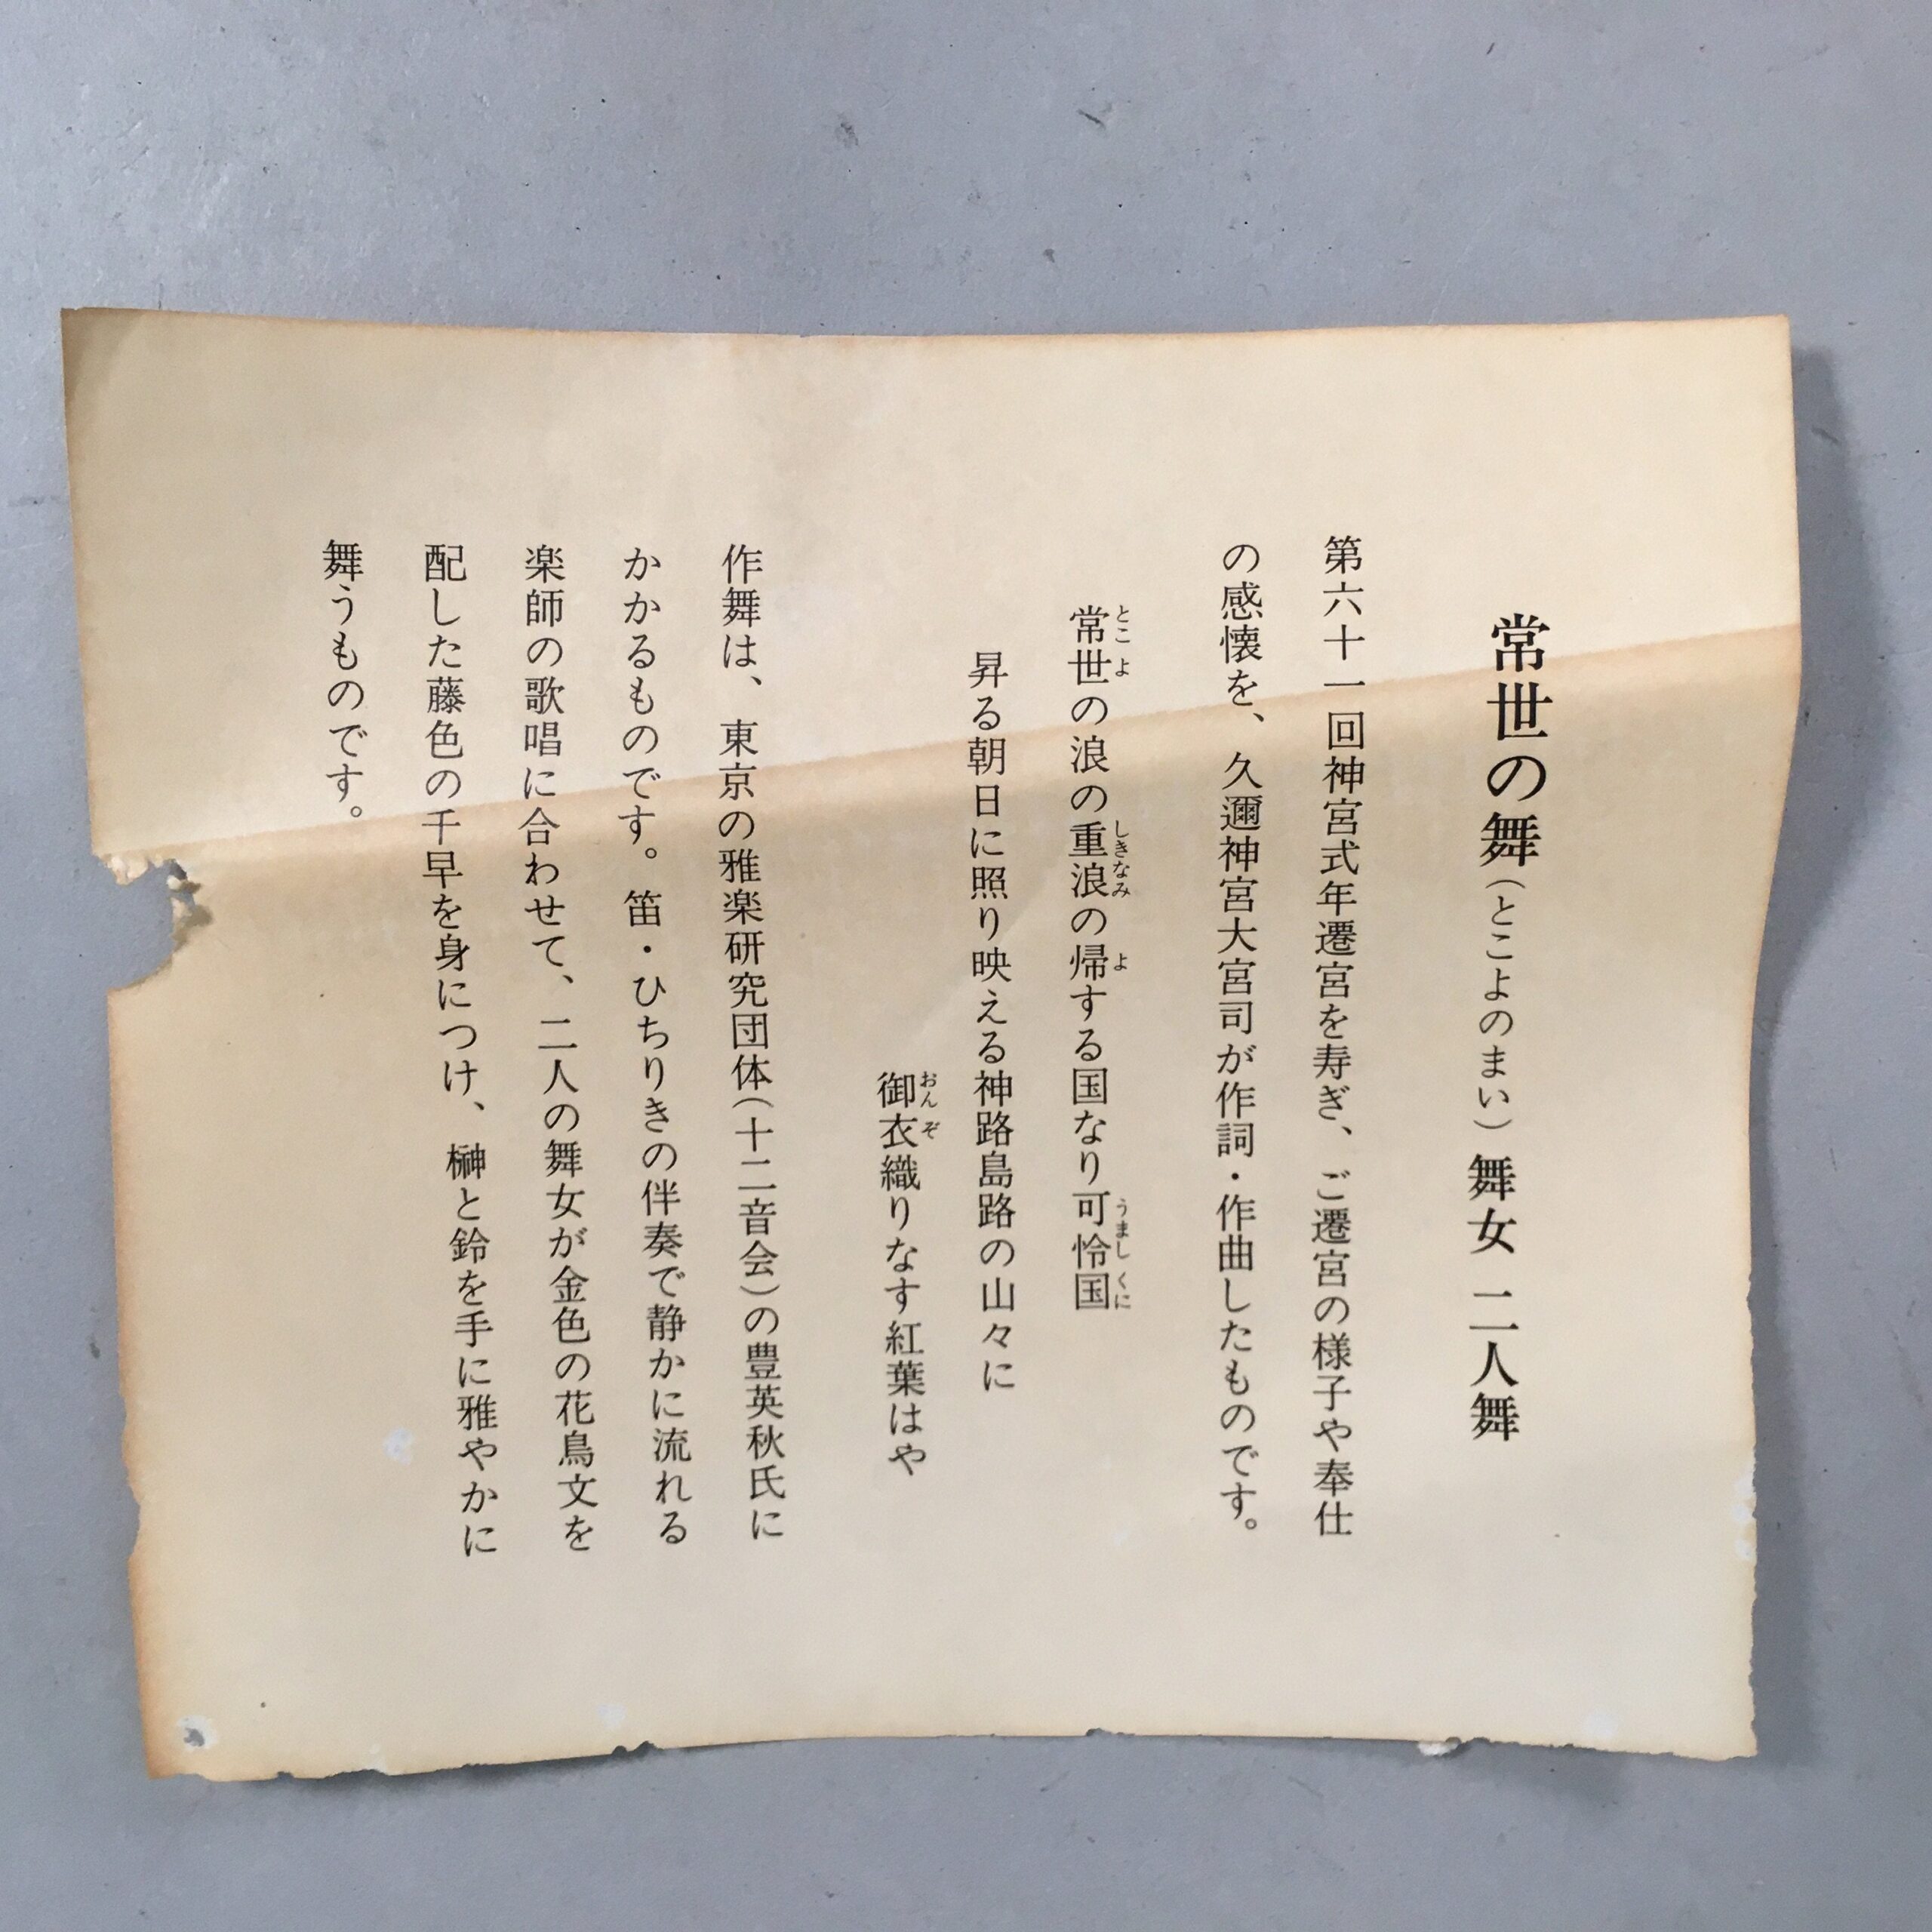 常世の舞（とこよのまい）舞女 二人舞
第六十一回神宮式年遷宮を寿ぎ、ご遷宮の様子や奉仕
の感懐を、久邇神宮大宮司が作詞・作曲したものです。
常世の浪の重浪の帰する国なり可怜国
とこ よ しきなみ よ うまし くに
昇る朝日に照り映える神路島路の山々に
御衣織りなす紅葉はや
おん ぞ
作舞は、東京の雅楽研究団体（十二音会）の豊英秋氏に
かかるものです。笛・ひちりきの伴奏で静かに流れる
楽師の歌唱に合わせて、二人の舞女が金色の花鳥文を
配した藤色の千早を身につけ、榊と鈴を手に雅やかに
舞うものです。